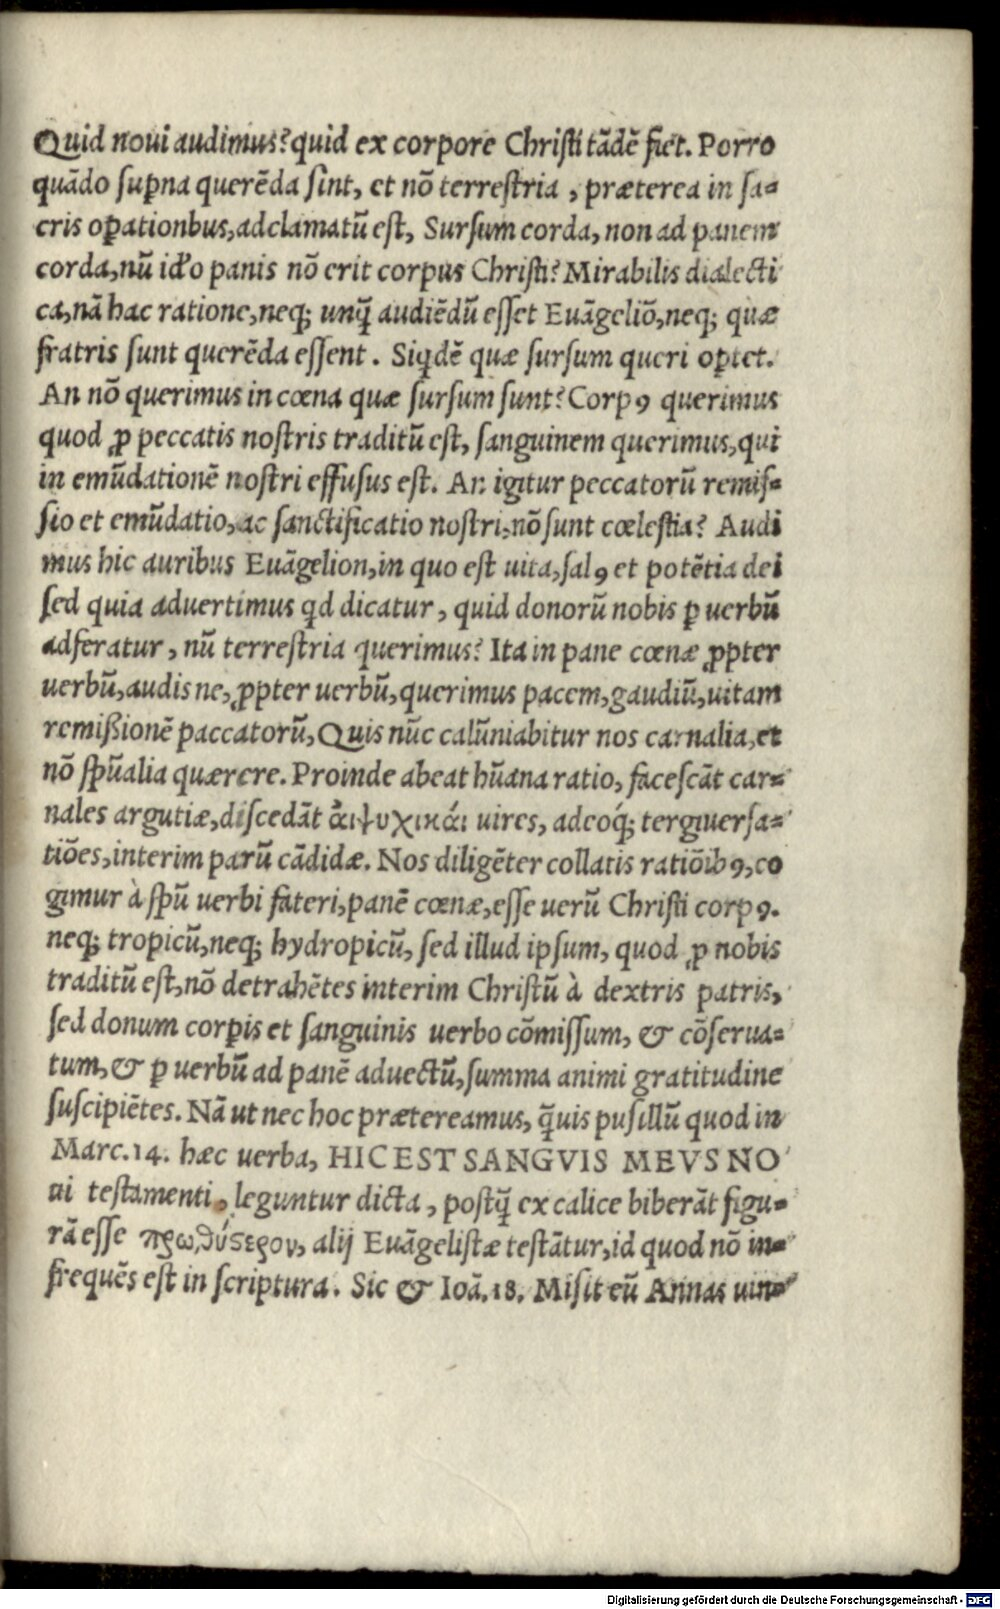 Quid noui audimus? quid ex corpore Christi tãdẽ fiet. Porro
quãdo sup̱na querẽda sint, et nõ terrestria, præterea in sa-
cris op̱ationbus, adclamatũ est, Sursum corda, non ad panem
corda, nũ idꝰo panis nõ erit corpus Christi? Mirabilis dialecti
ca, nã hac ratione, neqꝫ unq̃ audiẽdũ esset Euãgeliõ, neqꝫ quæ
fratris sunt querẽda essent. Siqdẽ quæ sursum queri op̱tet.
An nõ querimus in cœna quæ sursum sunt? Corpꝰ querimus
quod ꝓ peccatis nostris traditũ est, sanguinem querimus, qui
in emũdationẽ nostri effusus est. An igitur peccatorũ remis-
sio et emũdatio, ac sanctificatio nostri, nõ sunt cœlestia? Audi
mus hic auribus Euãgelion, in quo est uita, salꝰ et potẽtia dei
sed quia aduertimus qd dicatur, quid donorũ nobis p̱ uerbũ
adferatur, nũ terrestria querimus? Ita in pane cœnæ ꝓpter
uerbũ, audis ne, ꝓpter uerbũ, querimus pacem, gaudiũ, uitam
remißionẽ paccatorũ, Quis nũc calũniabitur nos carnalia, et
nõ sp̃ualia quærere. Proinde abeat hũana ratio, facescãt car-
nales argutiæ, discedãt ἁιψυχικάι uires, adeoq́ꝫ tergiuersa-
tiões, interim parũ cãdidæ. Nos diligẽter collatis ratiõibꝰ, co
gimur à sp̃u uerbi fateri, panẽ cœnæ, esse uerũ Christi corpꝰ.
neqꝫ tropicũ, neqꝫ hydropicũ, sed illud ipsum, quod ꝓ nobis
traditũ est, nõ detrahẽtes interim Christũ à dextris patris,
sed donum corp̱is et sanguinis uerbo cõmissum, & cõserua-
tum, & p̱ uerbũ ad panẽ aduectũ, summa animi gratitudine
suscipiẽtes. Nã ut nec hoc prætereamus, q̃uis pusillũ quod in
Marc. 14. hæc uerba, HIC EST SANGVIS MEVS NO
ui testamenti, leguntur dicta, postq̃ ex calice biberãt figu-
rã esse πρωθύςερον, alij Euãgelistæ testãtur, id quod nõ in-
frequẽs est in scriptura. Sic & Ioã. 18. Misit eũ Annas uin-
Digitalisierung gefördert durch die Deutsche Forschungsgemeinschaft - DFG